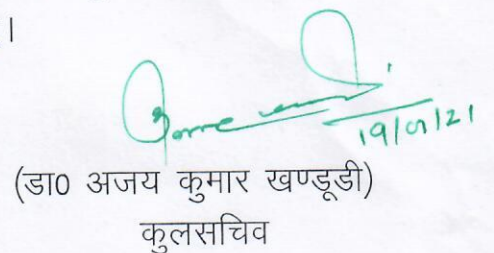 ।
19/01/21
(डा0 अजय कुमार खण्डूडी)
कुलसचिव